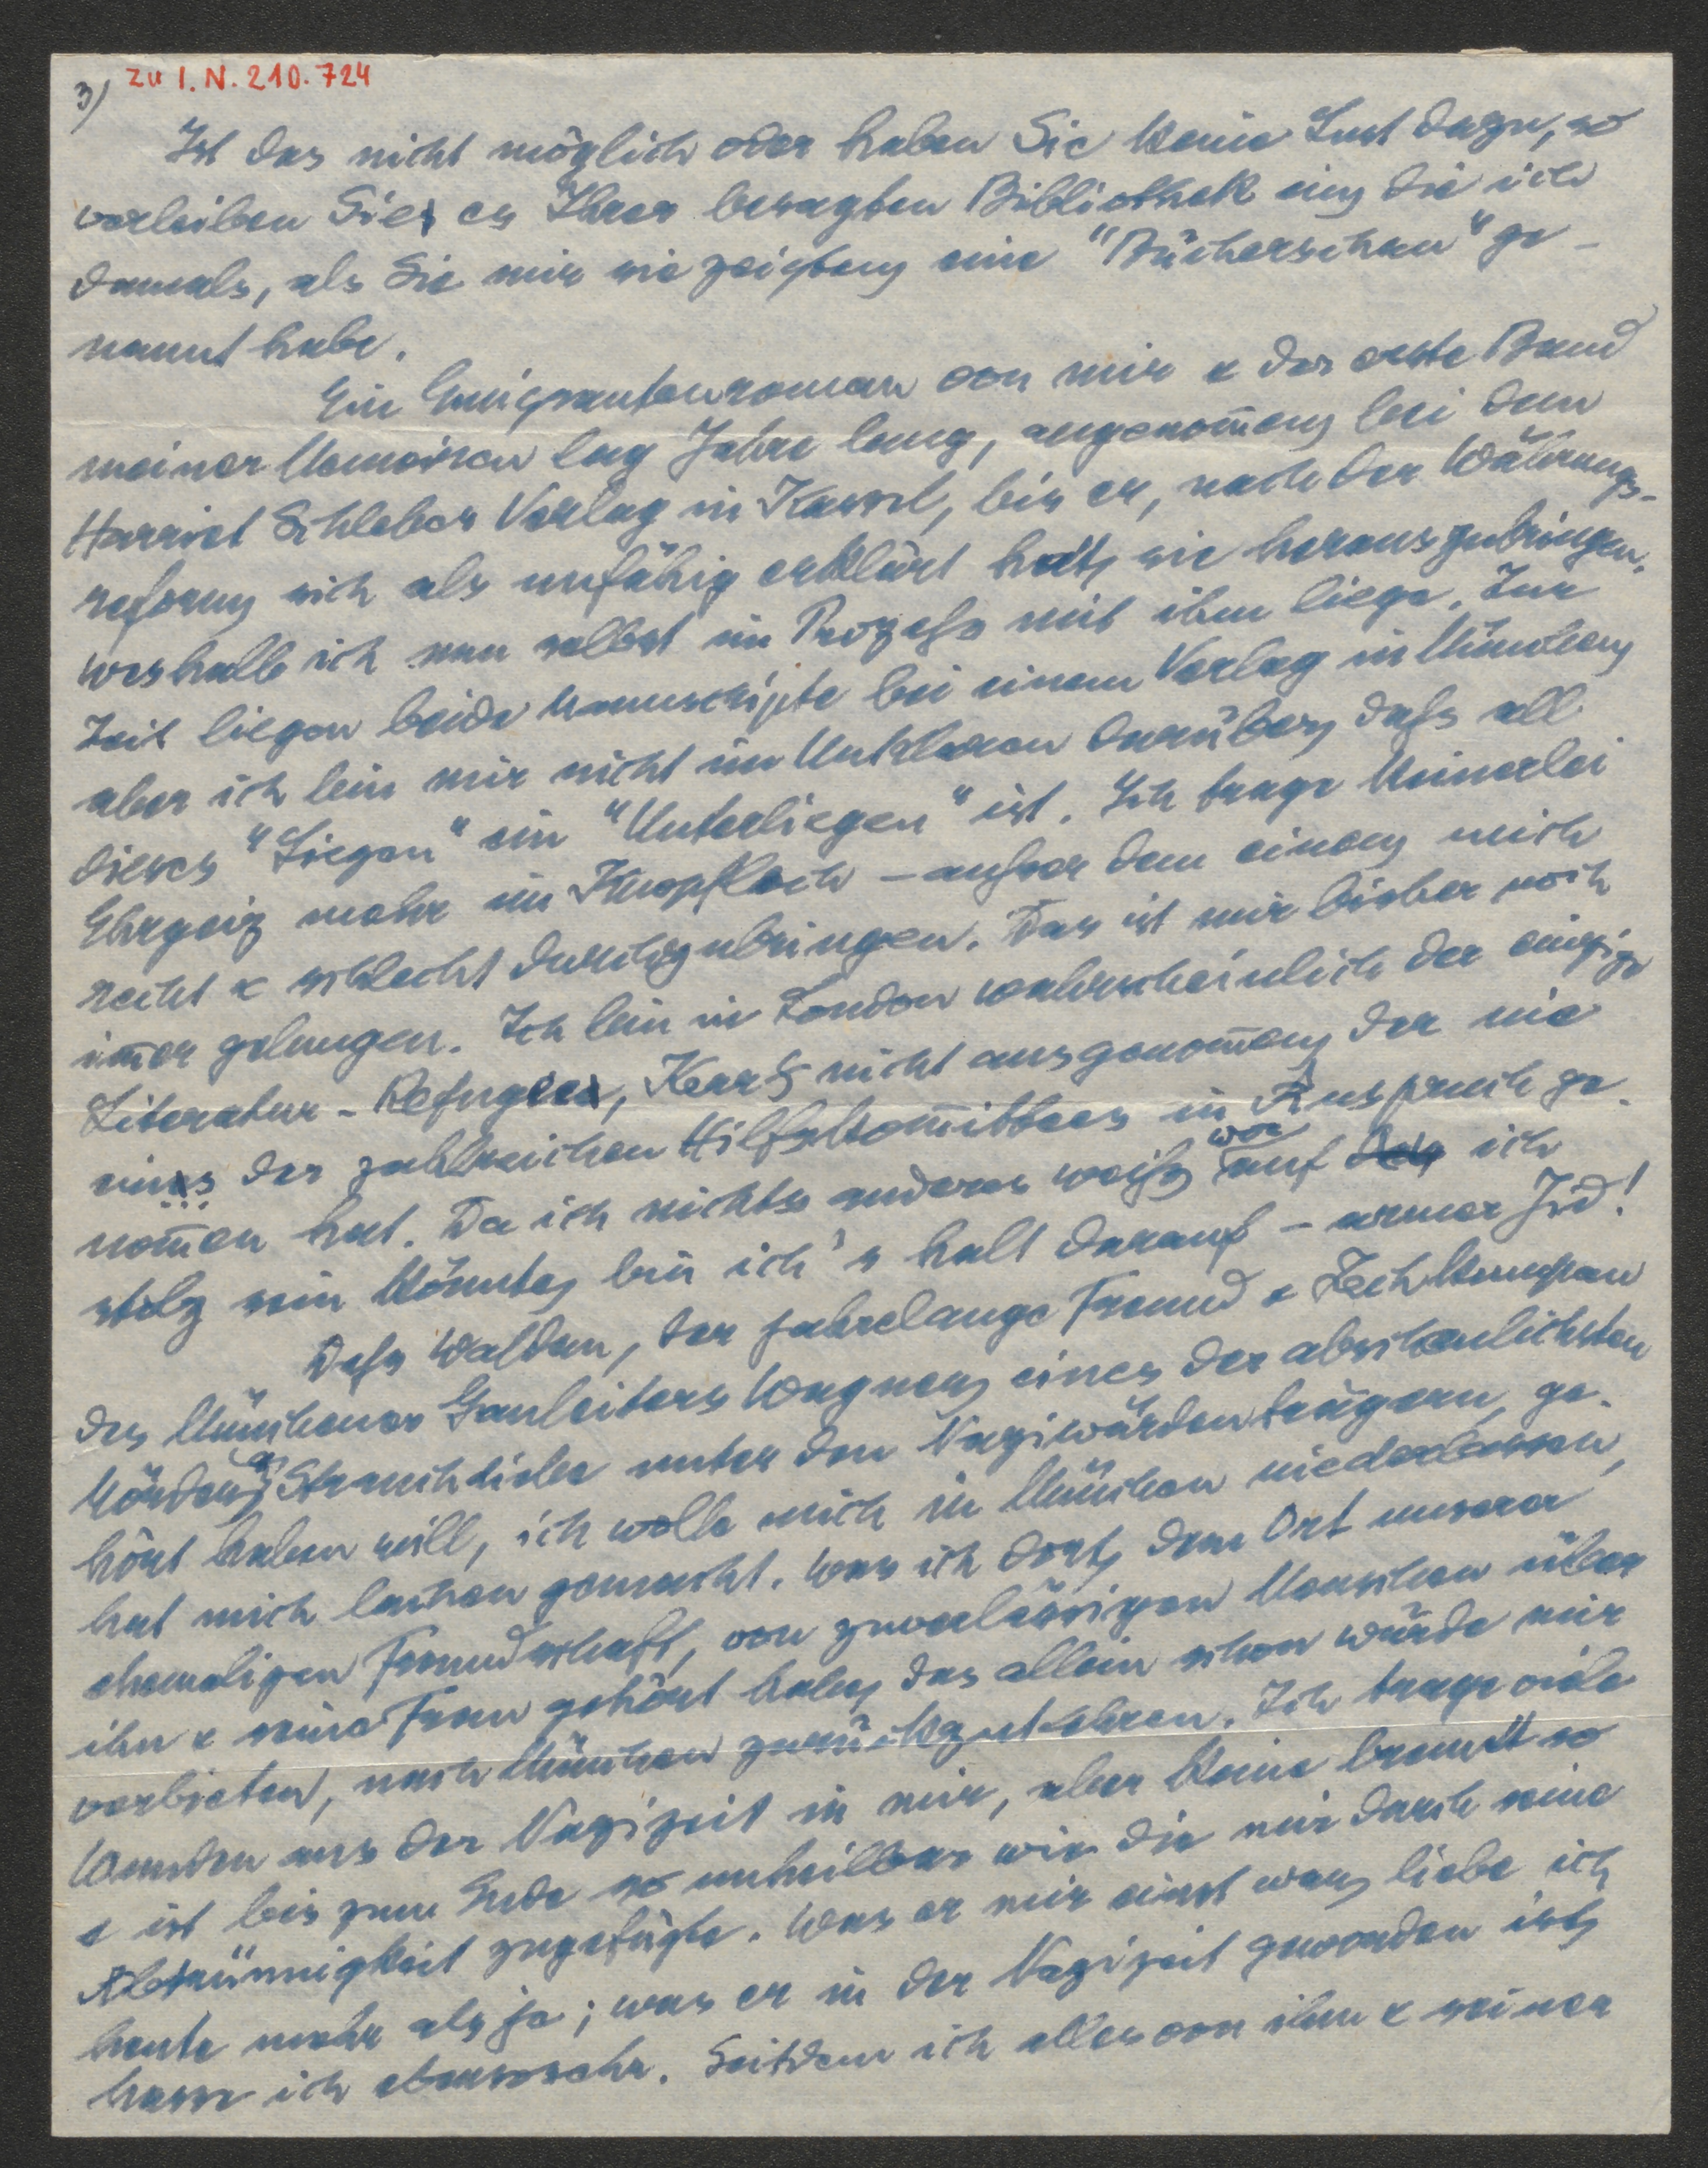 3) zu I. N. 210.724
Ist das nicht möglich oder haben Sie keine Lust dazu, so
verleiben Sie es Ihrer besagten Bibliothek ein, die ich
damals, als Sie mir sie zeigten, eine "Bücherschau" ge-
nannt habe.
Ein Emigrantenroman von mir & der erste Band
meiner Memoiren lag Jahre lang, angenom̄en, bei dem
Harriet Schleber Verlag in Kassel, bis er, nach der Währungs-
reform, sich als unfähig erklärt hat, sie herauszubringen,
weshalb ich nun selbst im Prozess mit ihm liege. Zur
Zeit liegen beide Manuskripte bei einem Verlag in München,
aber ich bin mir nicht im Unklaren darüber, dass all
dieses "Liegen" ein "Unterliegen" ist. Ich trage keinerlei
Ehrgeiz mehr im Knopfloch – ausser dem einen, mich
recht & schlecht durchzubringen. Das ist mir bisher noch
im̄er gelungen. Ich bin in London wahrscheinlich der einzige
Literatur-Refugee, Kerr nicht ausgenom̄en, der nie
eines der zahlreichen Hilfskom̄ittees in Anspruch ge-
nom̄en hat. Da ich nichts anderes weiss, worauf ich
stolz sein könnte, bin ich's halt darauf – armer Jud!
Dass Waldau, der jahrelange Freund & Zechkumpan
des Münchener Gauleiters Wagner, eines der abscheulichsten
Mörder & Strauchdiebe unter den Naziwürdenträgern, ge-
hört haben will, ich wolle mich in München niederlassen,
hat mich lachen gemacht. Was ich dort, dem Ort unserer
ehemaligen Freundschaft, von zuverlässigen Menschen über
ihn & seine Frau gehört habe, das allein schon würde mir
verbieten, nach München zurückzukehren. Ich trage viele
Wunden aus der Nazizeit in mir, aber keine brennt so
& ist bis zum Ende so unheilbar wie die mir durch seine
Abtrünnigkeit zugefügte. Was er mir einst war, liebe ich
heute mehr als je; was er in der Nazizeit geworden ist,
hasse ich ebensosehr. Seitdem ich alles von ihm & seiner